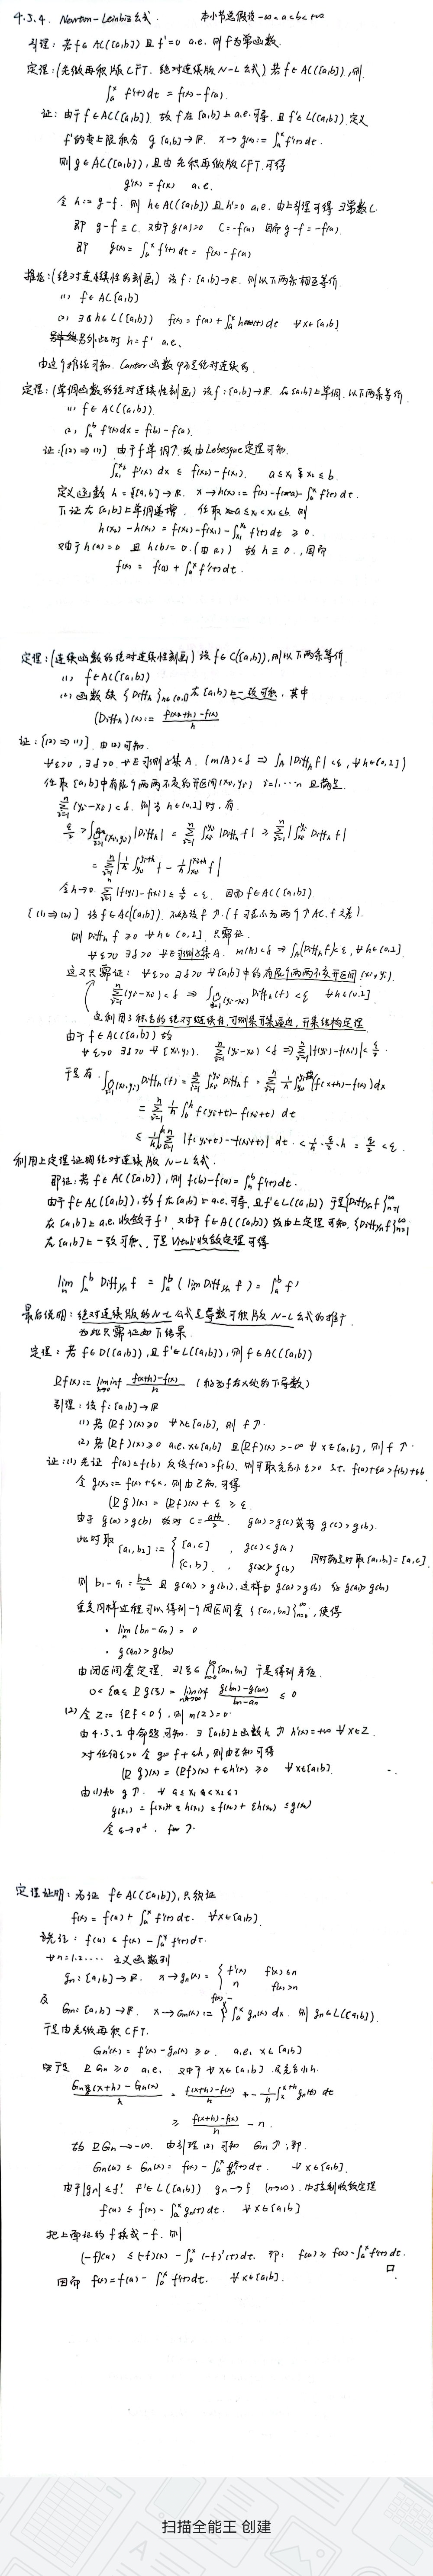 4.5.4. Newton-Leinbiz公式. 本小节总假设 -∞<a<b<+∞
引理：若f∈AC([a,b]) 且 f'=0 a.e. 则 f为常函数.
定理：(先微再积版CFT. 绝对连续版N-L公式) 若f∈AC([a,b]), 则
∫_a^x f'(t)dt = f(x)-f(a).
证：由于f∈AC([a,b]). 故f在[a,b]上a.e.可导. 且f'∈L([a,b]). 定义
f'的变上限积分 g:[a,b]→R. x→g(x):=∫_a^x f'(t)dt.
则g∈AC([a,b]), 且由先积再微版CFT, 可得
g'(x) = f'(x) a.e.
令 h:= g-f. 则 h∈AC([a,b]) 且 h'=0 a.e. 由上引理可得 ∃常数C.
即 g-f ≡ C. 又由于g(a)=0 C=-f(a) 因而 g-f=-f(a).
即 g(x)=∫_a^x f'(t)dt = f(x)-f(a)
推论：(绝对连续性的刻画) 设f:[a,b]→R. 则以下两条相互等价.
(1) f∈AC[a,b]
(2) ∃ h∈L([a,b]) f(x)=f(a)+∫_a^x h(t)dt ∀x∈[a,b]
另外此时 h=f' a.e.
由这个推论可知. Cantor函数φ不是绝对连续的.
定理：(单调函数的绝对连续性刻画) 设f:[a,b]→R. 在[a,b]上单调. 以下两条等价.
(1) f∈AC([a,b]).
(2) ∫_a^b f'(x)dx = f(b)-f(a).
证：[(2)⇒(1)] 由于f单调↑. 故由Lebesgue定理可知.
∫_{x1}^{x2} f'(x) dx ≤ f(x2)-f(x1). a≤x1≤x2≤b.
定义函数 h:[a,b]→R. x→h(x):= f(x)-f(a)-∫_a^x f'(t)dt.
下证在[a,b]上单调递增. 任取 a≤x1<x2≤b. 则
h(x2)-h(x1) = f(x2)-f(x1)-∫_{x1}^{x2} f'(t)dt ≥ 0.
又由于h(a)=0 且 h(b)=0. (由(2)) 故 h≡0. 因而
f(x) = f(a)+∫_a^x f'(t)dt.
定理：(连续函数的绝对连续性刻画) 设f∈C([a,b]), 则以下两条等价.
(1) f∈AC([a,b])
(2) 函数族 {Diff_h}_{h∈(0,1]} 在[a,b]上一致可积. 其中
(Diff_h)(x):= (f(x+h)-f(x))/h
证：[(2)⇒(1)]. 由(2)可知.
∀ε>0, ∃δ>0. ∀E可测集A. (m(A)<δ ⇒ ∫_A |Diff_h f| <ε, ∀h∈(0,1])
任取[a,b]中有限个两两不交的开区间(xi,yi) i=1,…n 且满足.
∑_{i=1}^n (yi-xi)<δ. 则当h∈(0,1]时, 有.
ε/2 > ∫_{∪(xi,yi)} |Diff_h| = ∑_{i=1}^n ∫_{xi}^{yi} |Diff_h f| ≥ ∑_{i=1}^n |∫_{xi}^{yi} Diff_h f|
= ∑_{i=1}^n |1/h ∫_{yi}^{yi+h} f - 1/h ∫_{xi}^{xi+h} f|
令h→0. ∑_{i=1}^n |f(yi)-f(xi)| ≤ ε/2 < ε. 因而f∈AC([a,b]).
[(1)⇒(2)] 设f∈AC([a,b]). 不妨设f↑. (f可表示为两个↑AC. f之差).
则 Diff_h f ≥0 ∀h∈(0,1]. 只需证.
∀ε>0 ∃δ>0 ∀E可测集A. m(A)<δ ⇒ ∫_A |Diff_h f|<ε, ∀h∈(0,1].
这又只需证： ∀ε>0 ∃δ>0 ∀[a,b]中的有限个两两不交开区间(xi,yi).
∑_{i=1}^n (yi-xi)<δ ⇒ ∫_{∪(yi-xi)} Diff_h(f)<ε ∀h∈(0,1]
这利用了积分的绝对连续性. 可测集开集逼近, 开集结构定理
由于f∈AC([a,b]) 故
∀ε>0 ∃δ>0 ∀(xi,yi). ∑_{i=1}^n (yi-xi)<δ ⇒ ∑_{i=1}^n |f(yi)-f(xi)|<ε/2.
于是有. ∫_{∪(xi,yi)} Diff_h(f) = ∑_{i=1}^n ∫_{xi}^{yi} Diff_h f = ∑_{i=1}^n 1/h ∫_{xi}^{yi} (f(x+h)-f(x)) dx
= ∑_{i=1}^n 1/h ∫_0^h f(yi+t)-f(xi+t) dt
≤ 1/h ∫_0^h ∑_{i=1}^n |f(yi+t)-f(xi+t)| dt. < 1/h · ε/2 · h = ε/2 < ε.
利用上定理证明绝对连续版 N-L公式.
即证：若f∈AC([a,b]), 则 f(b)-f(a)=∫_a^b f'(t)dt.
由于f∈AC([a,b]), 故f在[a,b]上a.e.可导, 且f'∈L([a,b]) 于是{Diff_{1/n} f}_{n=1}^∞
在[a,b]上a.e.收敛于f'. 又由于f∈AC([a,b]) 故由上定理可知. {Diff_{1/n} f}_{n=1}^∞
在[a,b]上一致可积. 于是Vitali收敛定理可得
lim_n ∫_a^b Diff_{1/n} f = ∫_a^b (lim Diff_{1/n} f) = ∫_a^b f'
最后说明：绝对连续版的N-L公式是导数可积版N-L公式的推广
为此只需证如下结果.
定理：若f∈D([a,b]), 且f'∈L([a,b]), 则f∈AC([a,b])
Df(x):= liminf_{h→0} (f(x+h)-f(x))/h (称为f在x处的下导数)
引理：设f:[a,b]→R
(1) 若 (Df)(x)≥0 ∀x∈[a,b], 则 f↑.
(2) 若 (Df)(x)≥0 a.e. x∈[a,b] 且(Df)(x)>-∞ ∀x∈[a,b], 则 f↑.
证：(1) 先证 f(a)≤f(b) 反设f(a)>f(b). 则可取充分小ε>0 s.t. f(a)+εa>f(b)+εb.
令 g(x):= f(x)+εx. 则由已知. 可得
(Dg)(x) = (Df)(x)+ε ≥ε.
由于 g(a)>g(b) 故对 C=(a+b)/2. g(a)>g(c)或者g(c)>g(b).
此时取 [a1,b1]:= { [a,c] , g(c)<g(a)
[c,b] , g(c)>g(b) 同时满足时取[a1,b1]=[a,c].
则 b1-a1=(b-a)/2 且 g(a1)>g(b1). 这样由g(a)>g(b) 给g(a1)>g(b1)
重复同样过程可以得到一个闭区间套{[an,bn]}_{n=0}^∞, 使得
· lim_n (bn-an) = 0
· g(an)>g(bn)
由闭区间套定理. ∃ξ∈∩_{n=0}^∞[an,bn] 于是得到矛盾.
0<ε≤Dg(ξ) = liminf_{n→∞} (g(bn)-g(an))/(bn-an) ≤0
(2) 令 Z:= {Df<0}, 则 m(Z)=0.
由4.5.2中命题可知. ∃[a,b]上函数h↑ h'(x)=+∞ ∀x∈Z.
对任何ε>0 令 g= f+εh, 则由已知可得
(Dg)(x) = (Df)(x)+εh'(x) ≥0 ∀x∈[a,b].
由(1)知 g↑. ∀ a≤x1<x2≤b
g(x1) = f(x1)+εh(x1) ≤ f(x2)+εh(x2) ≤g(x2)
令ε→0⁺. f↑.
定理证明：为证 f∈AC([a,b]), 只须证
f(x) = f(a)+∫_a^x f'(t)dt. ∀x∈[a,b].
先证： f(a) ≤ f(x)-∫_a^x f'(t)dt.
∀n=1,2,…. 定义函数列
gn: [a,b]→R. x→gn(x)= { f'(x) f'(x)≤n
n f'(x)>n
及
Gn: [a,b]→R. x→Gn(x):= f(x)-∫_a^x gn(x)dx. 则 gn∈L([a,b]).
于是由先微再积CFT.
Gn'(x) = f'(x)-gn(x) ≥0. a.e. x∈[a,b]
于是 DGn≥0 a.e. 又对于∀x∈[a,b] 及充分小h.
(Gn(x+h)-Gn(x))/h = (f(x+h)-f(x))/h - 1/h ∫_x^{x+h} gn(t) dt
≥ (f(x+h)-f(x))/h - n.
故 DGn>-∞. 由引理(2)可知 Gn↑, 即.
Gn(a) ≤ Gn(x) = f(x)-∫_a^x gn(t)dt. ∀x∈[a,b].
由于|gn|≤f' f'∈L([a,b]) gn→f (n→∞). 由控制收敛定理
f(a) ≤ f(x)-∫_a^x gn(t)dt. ∀x∈[a,b]
把上面证的f换成-f. 则
(-f)(a) ≤ (-f)(x)-∫_a^x (-f)'(t)dt. 即： f(a) ≥ f(x)-∫_a^x f'(t)dt.
因而 f(x)=f(a)-∫_a^x f'(t)dt. ∀x∈[a,b]. □
扫描全能王 创建